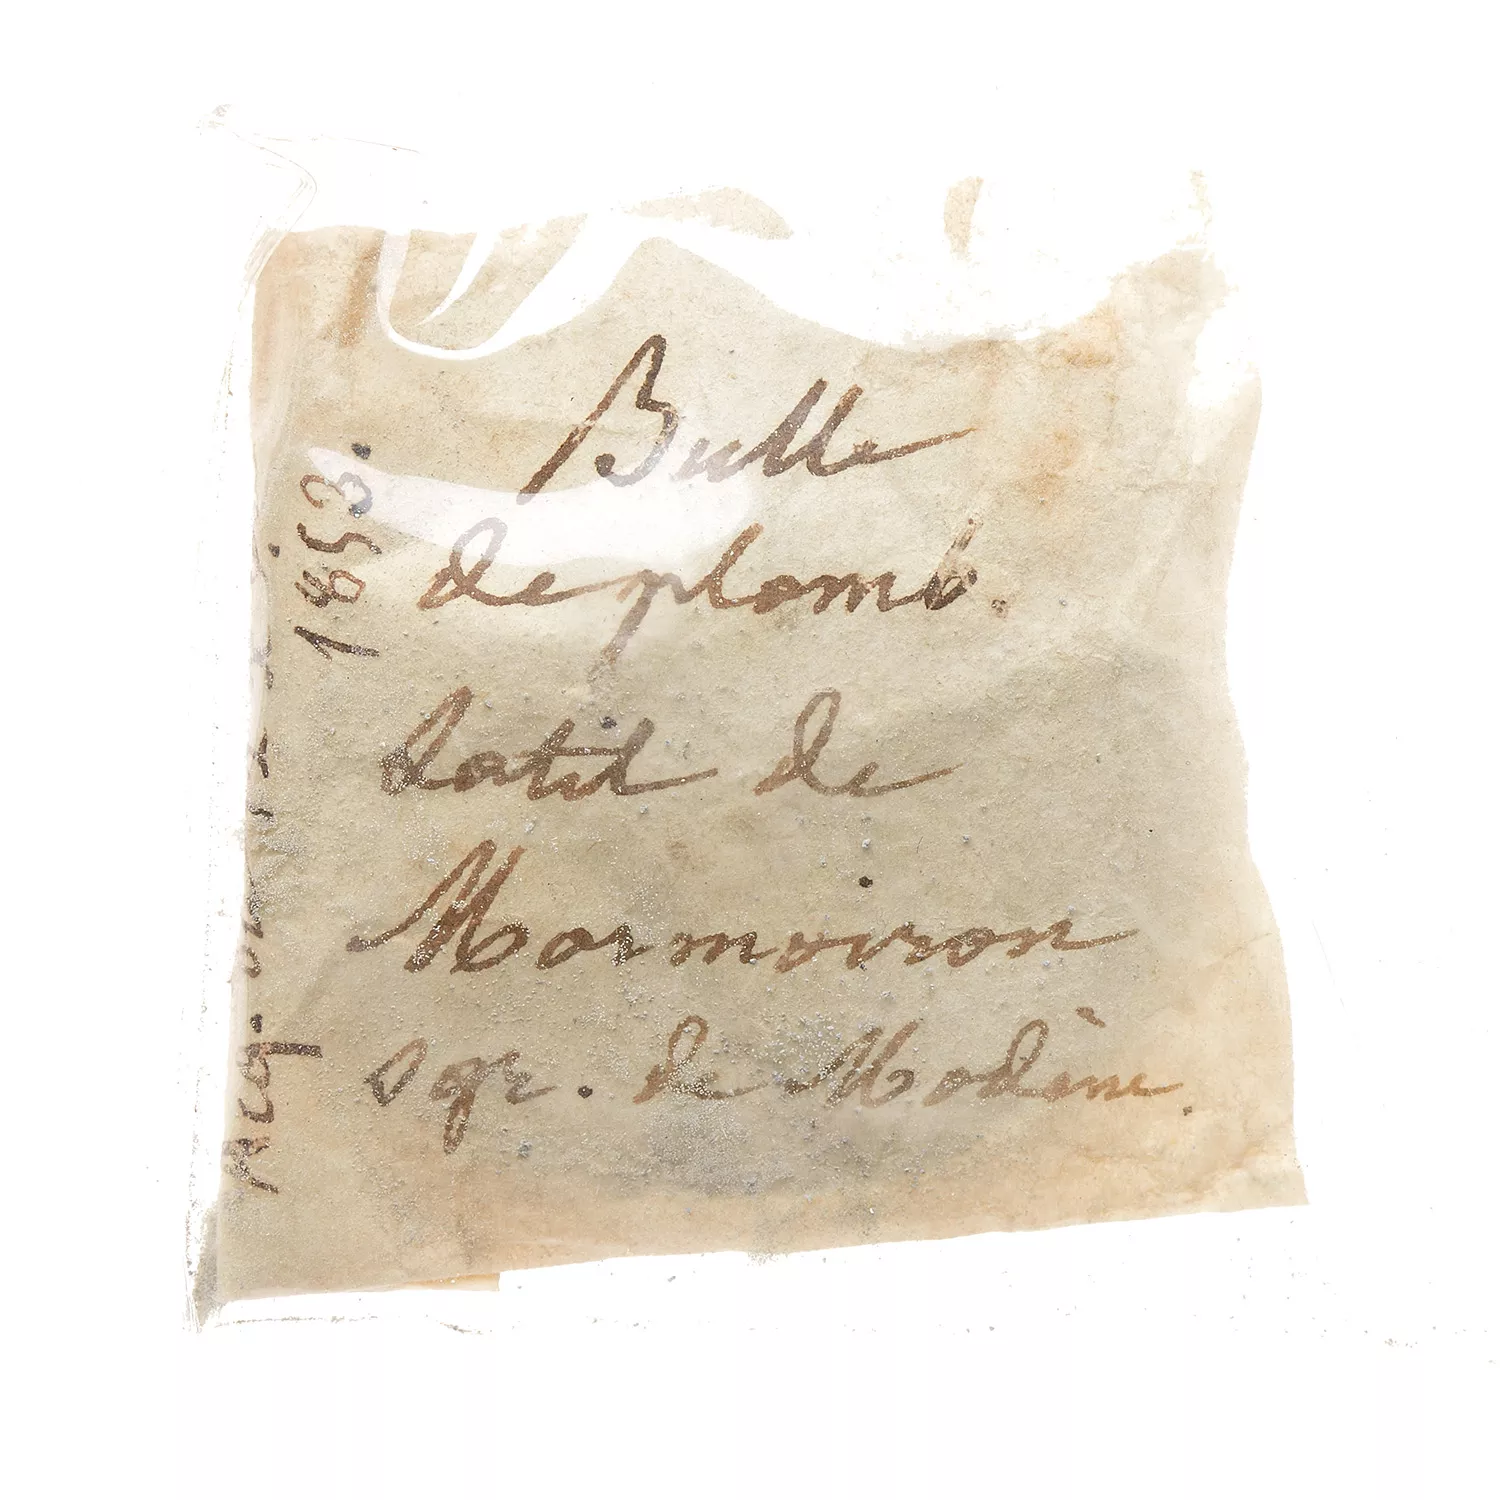 Bulle
de plomb.
datil de
Mormoiron
sgr. de Modène.
Acq.
1853.